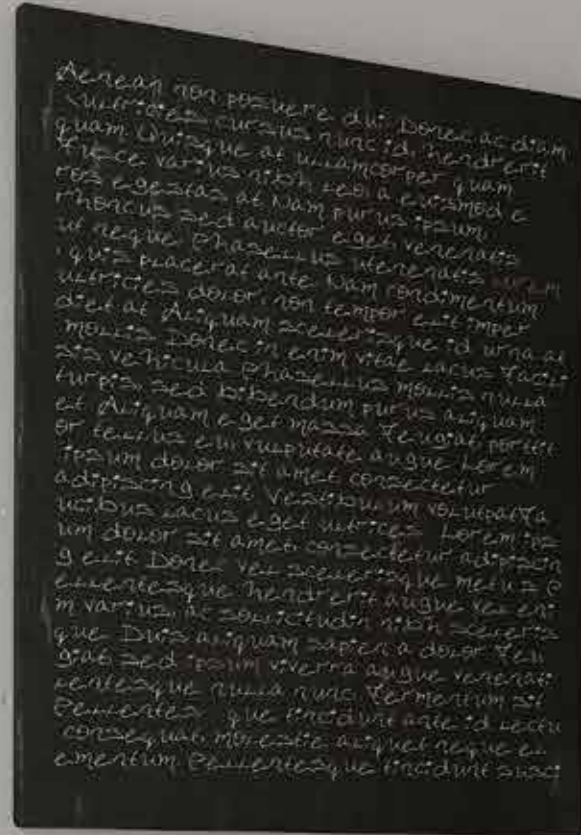 Aenean non posuere dui. Donec ac diam
ultricies cursus nunc id, hendrerit
quam. Quisque at ullamcorper quam
Fusce varius nibh leo, a euismod e
ros egestas at. Nam purus ipsum,
rhoncus sed auctor eget, venenatis
ut neque. Phasellus venenatis lorem
, quis placerat ante. Nam condimentum
ultricies dolor, non tempor elit imper
diet at. Aliquam scelerisque id urna at
mollis. Donec in enim vitae lacus facili
sis vehicula. Phasellus mollis nulla
turpis, sed bibendum purus aliquam
et. Aliquam eget massa feugiat, porttit
or tellus eu, vulputate augue. Lorem
ipsum dolor sit amet, consectetur
adipiscing elit. Vestibulum volutpat fa
ucibus lacus eget ultrices. Lorem ips
um dolor sit amet, consectetur adipiscin
g elit. Donec vel scelerisque metus. P
ellentesque hendrerit augue vel eni
m varius, ac sollicitudin nibh sceleris
que. Duis aliquam sapien a dolor feu
giat, sed ipsum viverra augue venenati
lentesque nulla nunc, fermentum sit
Pellentes, que tincidunt ante id lectu
consequat, molestie aliquet neque el
ementum. Pellentesque tincidunt susci